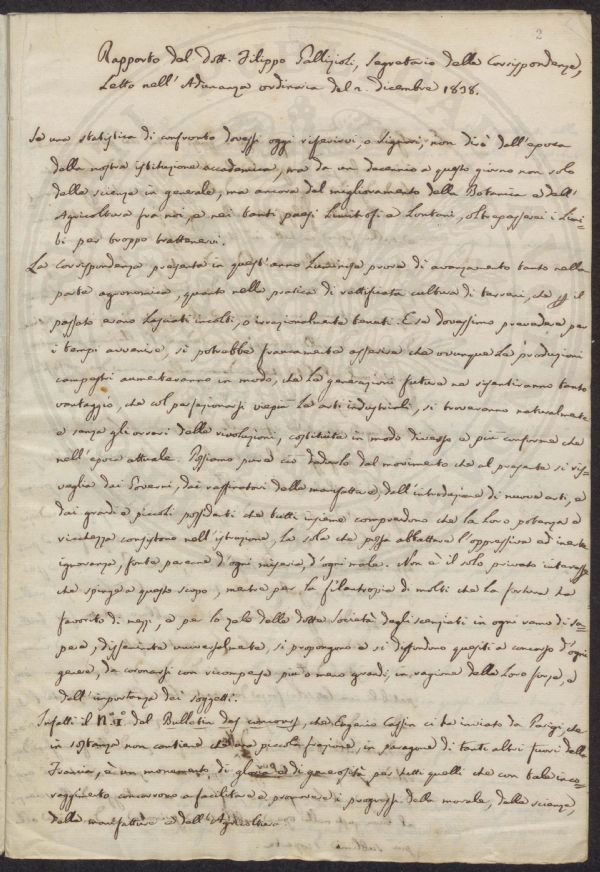 2
Rapporto del dott. Filippo Gallizioli, Segretario della Corrispondenza,
Letto nell'Adunanza ordinaria del 2. dicembre 1838.
Se una statistica di confronto dovessi oggi riferirvi, o Signori, non dirò dall'epoca
della nostra istituzione accademica, ma da un decennio a questo giorno non solo
delle scienze in generale, ma ancora del miglioramento della Botanica e dell'
Agricoltura fra noi, e nei tanti paesi limitrofi e Lontani, oltrepasserei i Limi-
ti per troppo trattenervi.
La Corrispondenza presenta in quest'anno Luminosa prova di avanzamento tanto nella
parte agronomica, quanto nella pratica di rettificata cultura di terreni, che il
passato erano Lasciati incolti, o irrazionalmente tenuti. E se dovessimo prevedere per
i tempi avvenire, si potrebbe francamente asserire che ovunque Le produzioni
campestri aumenteranno in modo, che Le generazioni future ne risentiranno tanto
vantaggio, che col perfezionarsi viepiù Le arti industriali, si troveranno naturalmente
e senza gli orrori delle rivoluzioni, costituite in modo diverso e più conforme che
nell'epoca attuale. Possiamo pure ciò dedurlo dal movimento che al presente si ris-
veglia dai Governi, dai raffinatori delle manifatture, dall'introduzione di nuove arti, e
dai grandi e piccoli possidenti che tutti insieme comprendono che La Loro potenza e
ricchezza consistono nell'istruzione, La sola che possa abbattere l'oppressiva ed inerte
ignoranza, fonte perenne d'ogni miseria, d'ogni male. Non è il solo privato interesse
che spinge a questo scopo, mentre per La filantropia di molti che La fortuna ha
favorito di mezzi, e per lo zelo delle dotte Società degli scenziati in ogni ramo di sa-
pere, disseminate universalmente, si propongono e si diffondono quesiti a concorso d'ogni
genere, da coronarsi con ricompense più o meno grandi, in ragione delle Loro forze, e
dell'importanza dei soggetti.
Infatti il N° 1° del Bulletin des concours, che Eugenio Cassin ci ha inviato da Parigi, che
in sostanza non contiene che una piccola frazione, in paragone di tanti altri fuori della
Francia, è un monumento di gloria e di generosità per tutti quelli che con tale inco-
raggimento concorrono a facilitare e promuovere i progressi della morale, delle scienze,
delle manifatture e dell'Agricoltura.